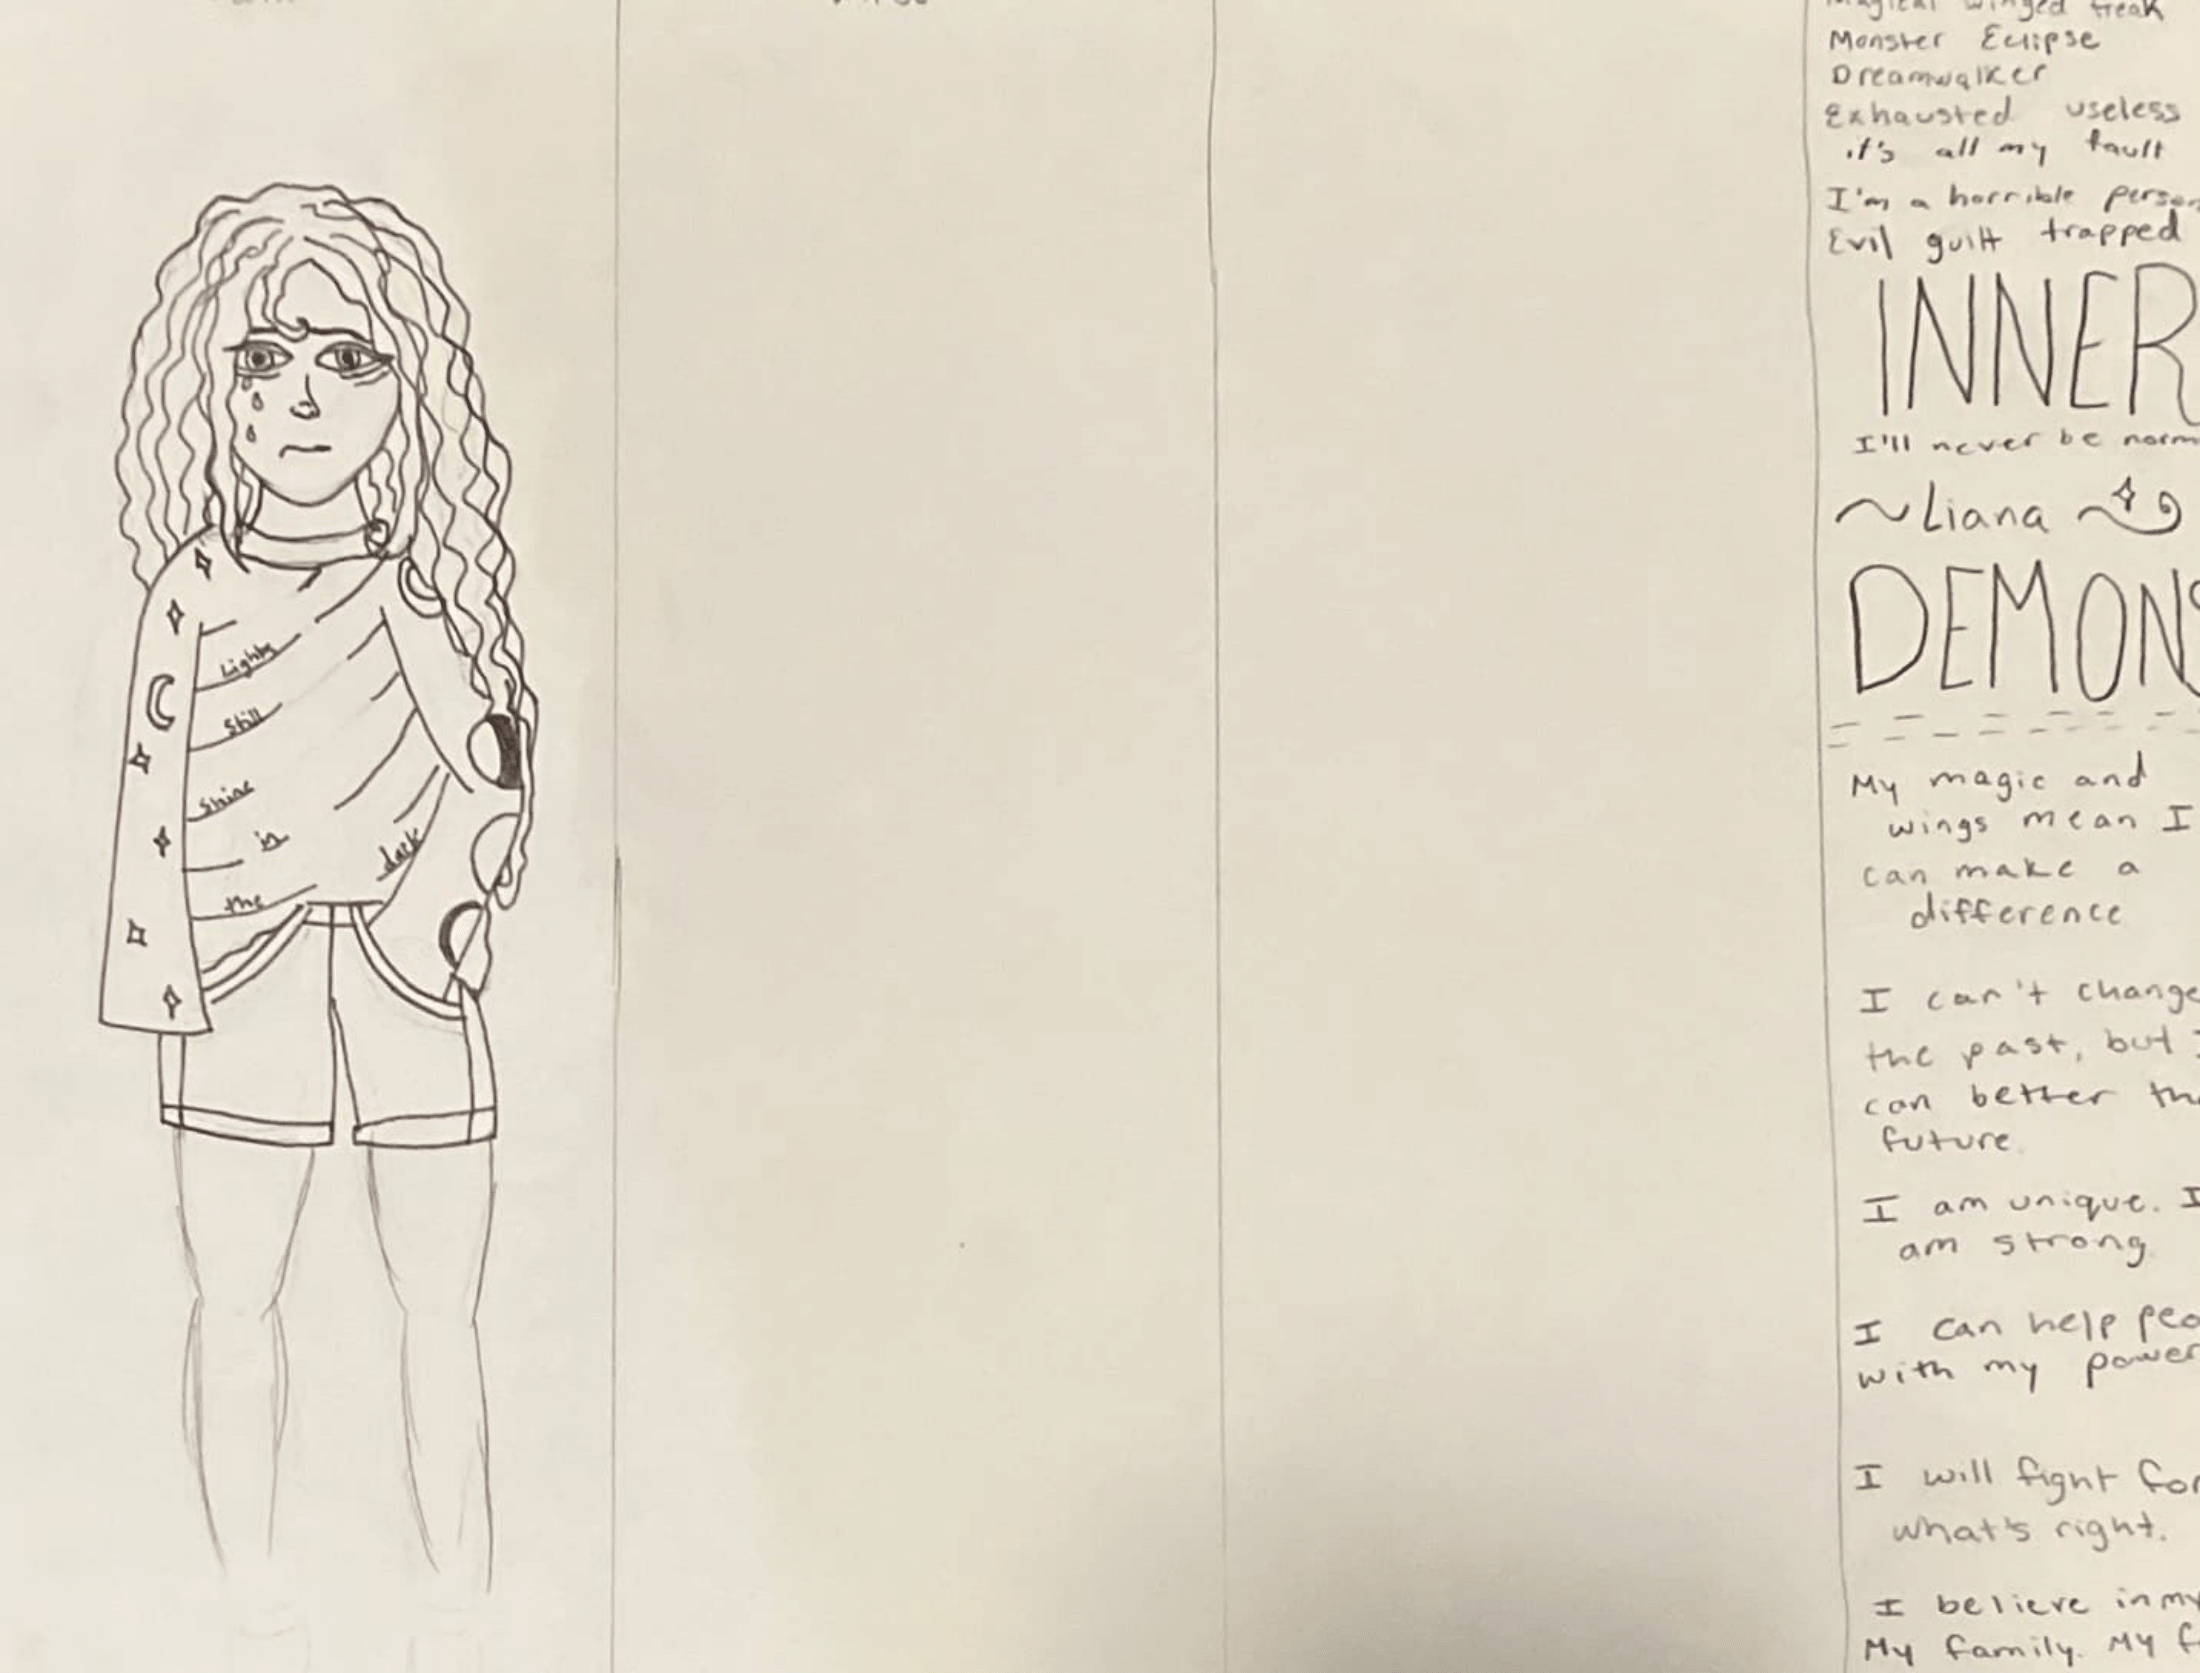 Lights
Still
Shine
in
the
dark
Magical winged freak
Monster Eclipse
Dreamwalker
Exhausted useless
it's all my fault
I'm a horrible person
Evil guilt trapped
INNER
I'll never be norm
~Liana~
DEMONS
My magic and
wings mean I
can make a
difference
I can't change
the past, but I
can better the
future.
I am unique. I
am strong
I can help peo
with my power
I will fight for
what's right.
I believe in my
My family. My f